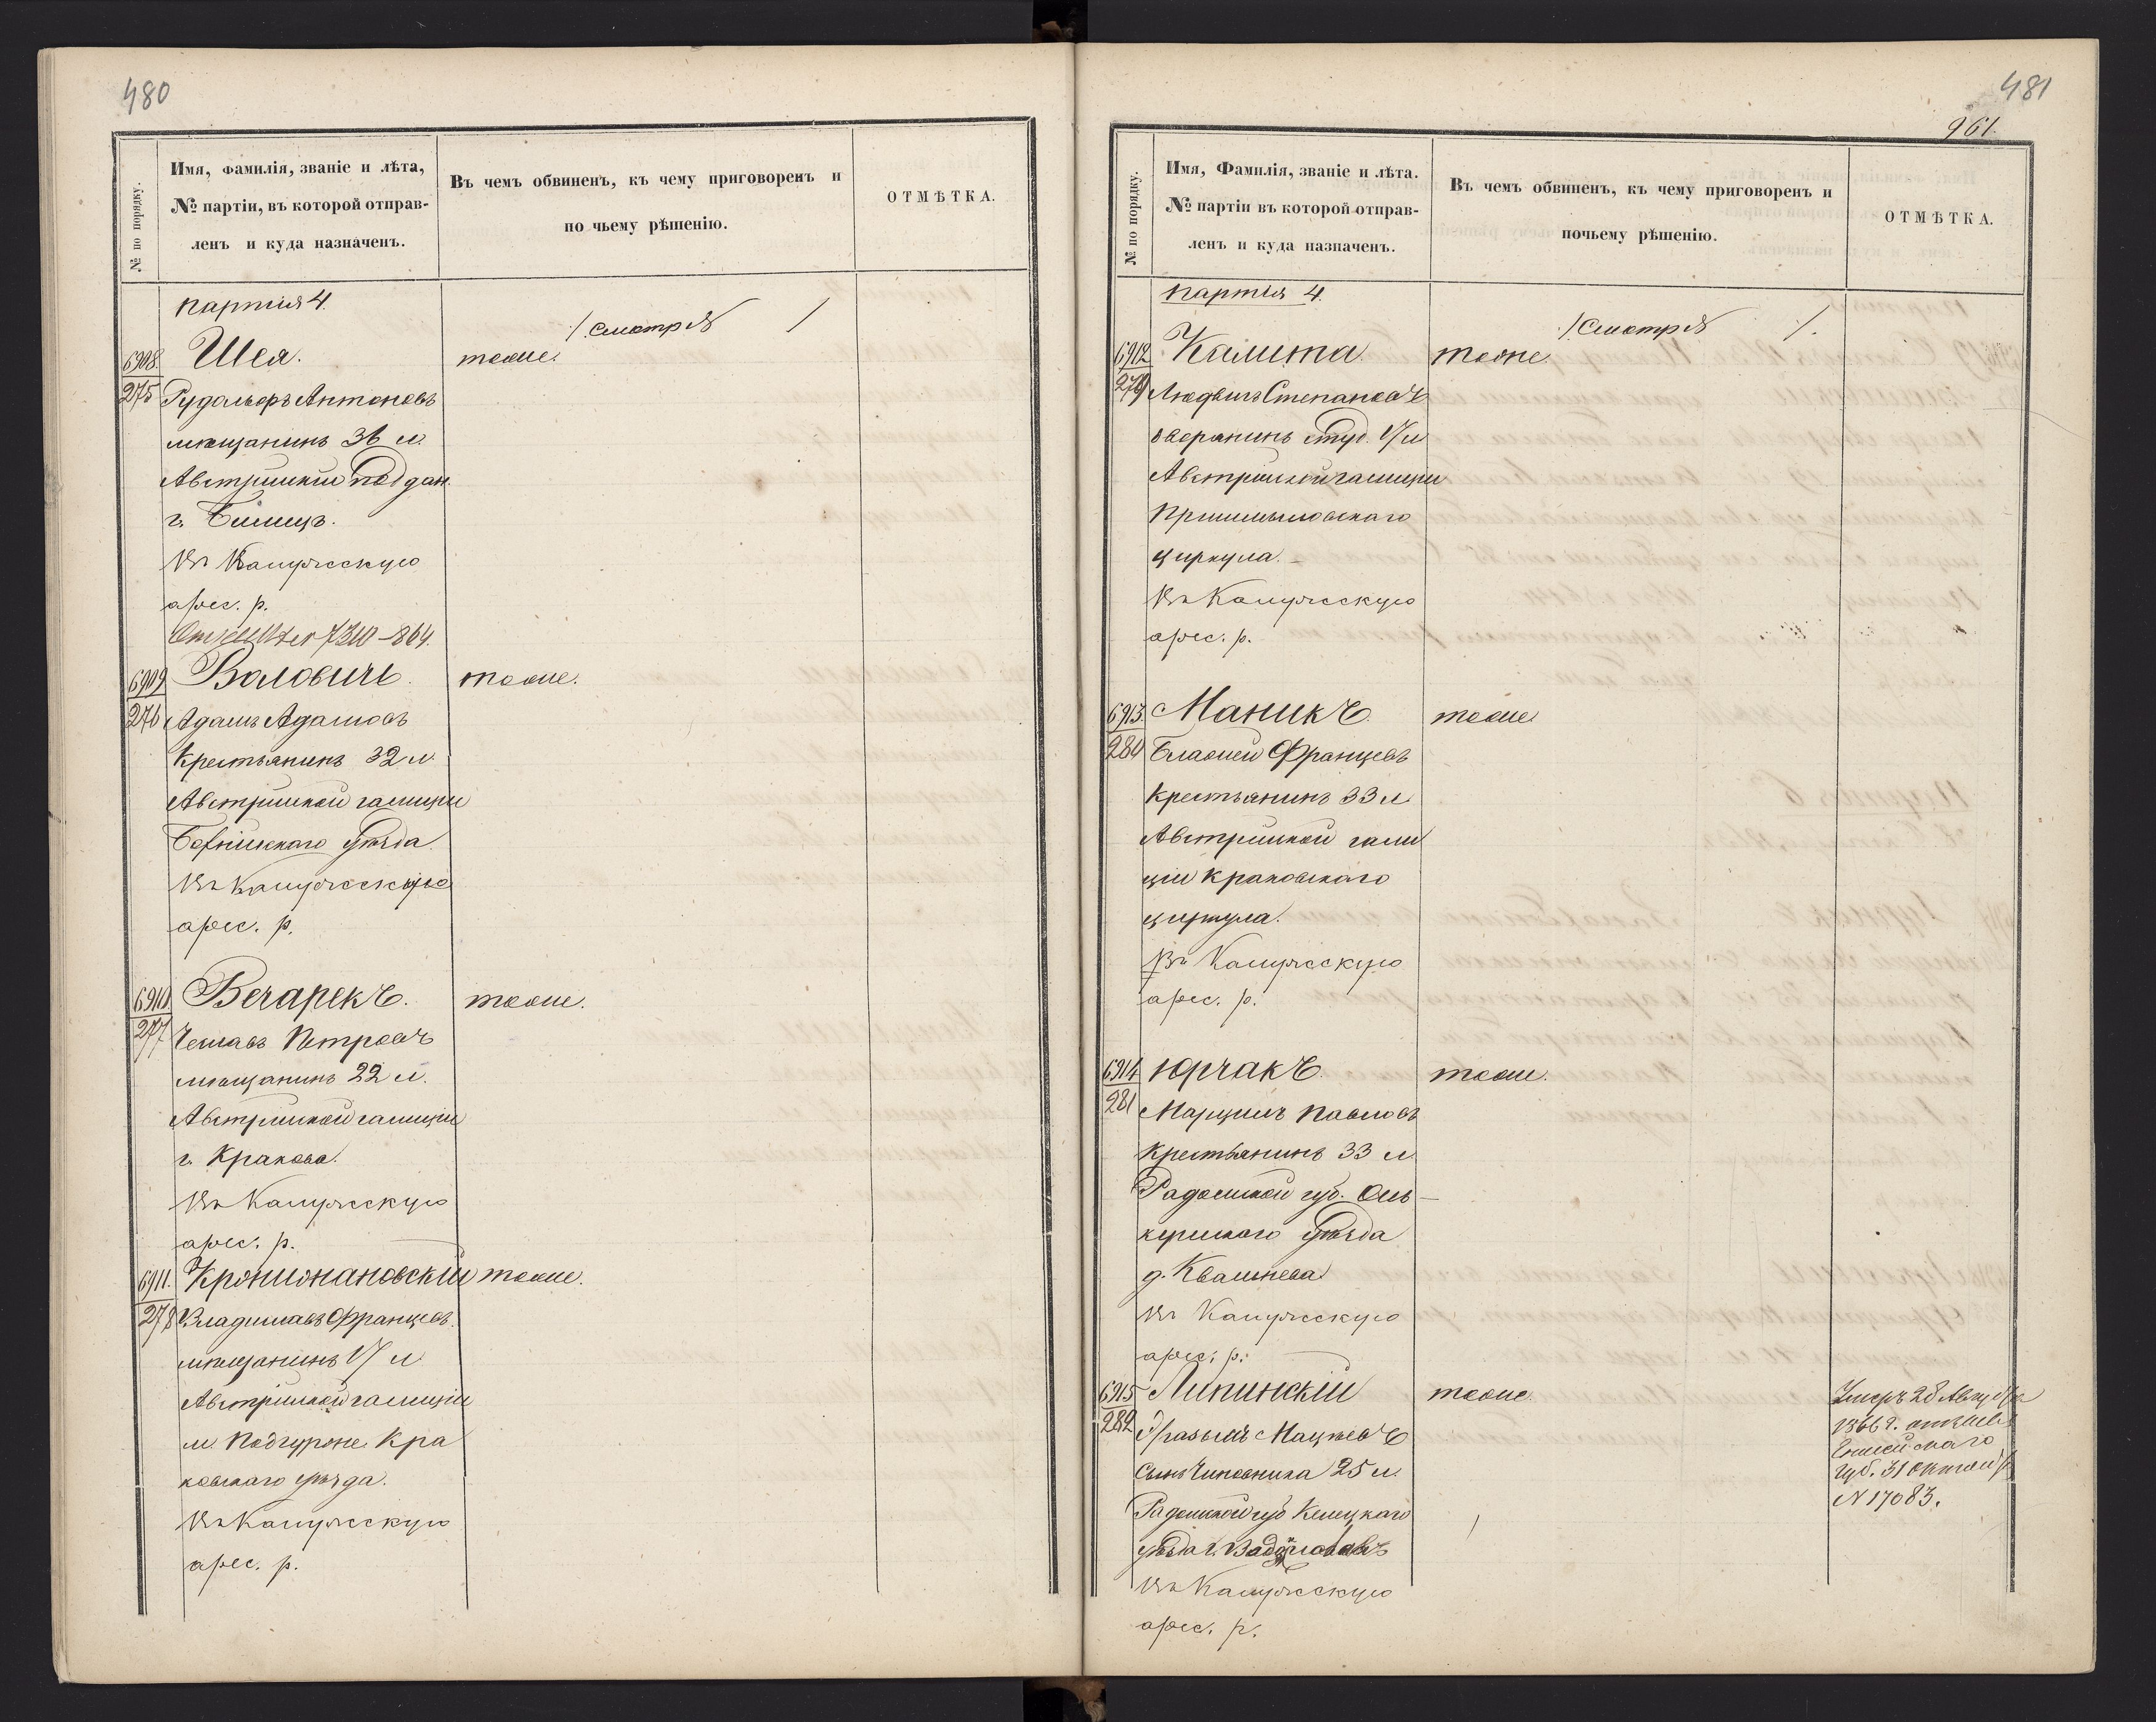 480
№ по порядку.
Имя, Фамилія, званіе и лѣта,
№ партіи, въ которой отправ-
ленъ и куда назначенъ.
Въ чемъ обвиненъ, къ чему приговоренъ и
по чьему рѣшенію.
ОТМѢТКА.
партія 4.
/. Смотр № /
6908. Шея. тоже.
275 Рудольфъ Антоновъ
мѣщанинъ 36 л.
Австрійскій поддан.
г. Бѣлицъ.
Въ Калужскую
арес. р.
7310-864.
6909 Воловичъ. тоже.
276 Адамъ Адамовъ
Крестьянинъ 32 л.
Австрійской галиціи
уѣзда
Въ Калужскую
арес. р.
6910 Вечарекъ. тоже.
277 Чеславъ Петровъ
мѣщанинъ 22 л.
Австрійской галиціи
г. Кракова.
Въ Калужскую
арес. р.
6911. тоже.
278 Владиславъ Францовъ.
мѣщанинъ 17 л.
Австрійской галиціи
м. Подгурже Кра
ковскаго уѣзда.
Въ Калужскую
арес. р.
481
961.
№ по порядку.
Имя, Фамилія, званіе и лѣта.
№ партіи въ которой отправ-
ленъ и куда назначенъ.
Въ чемъ обвиненъ, къ чему приговоренъ и
почьему рѣшенію.
ОТМѢТКА.
партія 4.
/. Смотр № /.
6912 Калита тоже.
279 Людвигъ Степановъ
дворянинъ студ. 17 л
Австрійской галиціи
циркула.
Въ Калужскую
арес. р.
6913. Маникъ. тоже
280 Блажей Францовъ
крестьянинъ 33 л
Австрійской гали
ціи Краковскаго
циркула.
Въ Калужскую
арес. р.
6914 Юрчакъ. тоже.
281 Марцинъ Павловъ
Крестьянинъ 33 л
Радомской губ. Оль-
кушскаго уѣзда
д. Квасньева
Въ Калужскую
арес. р.
6915 Липинскій тоже.
282 Эразымъ Мацѣевъ
Сынъ Чиновника 25 л.
Радомской губ Келецкаго
уѣзда г.
Въ Калужскую
арес. р.
Умеръ 28 Августа
1866 г.
Енисейскаго
губ. 31 октября
N 17083.